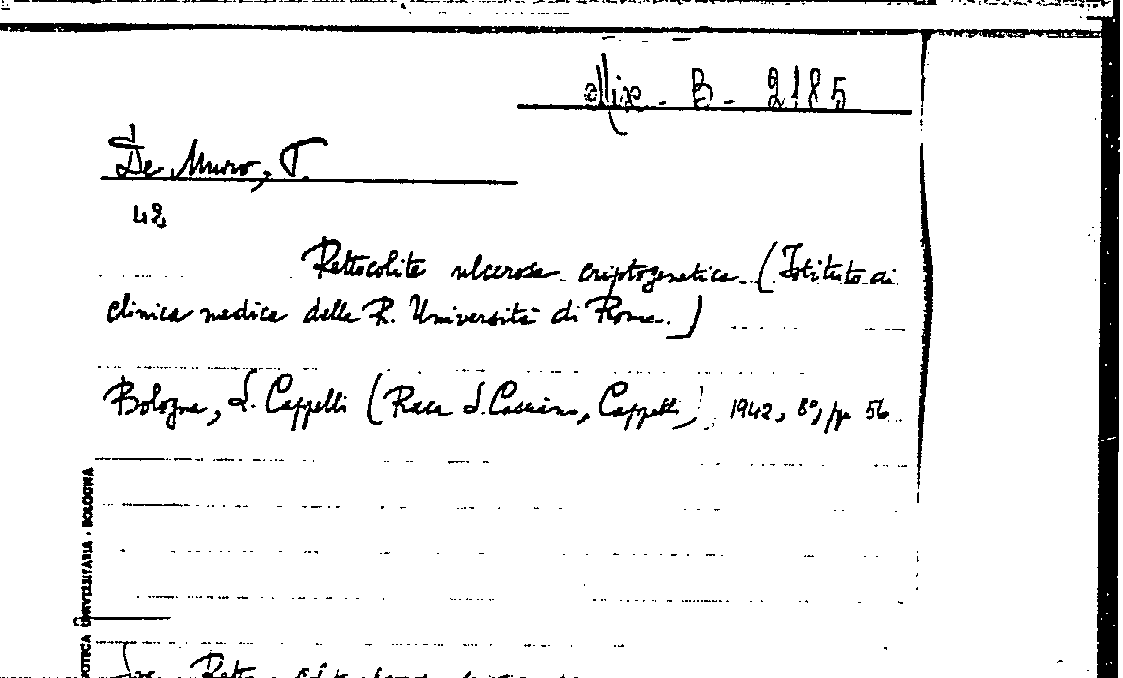 Mix - B - 2185
De Muro, T.
42
Rettocolite ulcerosa criptogenetica (Istituto di
clinica medica della R. Università di Roma.)
Bologna, L. Cappelli (Rocca S. Casciano, Cappelli), 1942, 8°, pp 56
UNIVERSITARIA - BOLOGNA